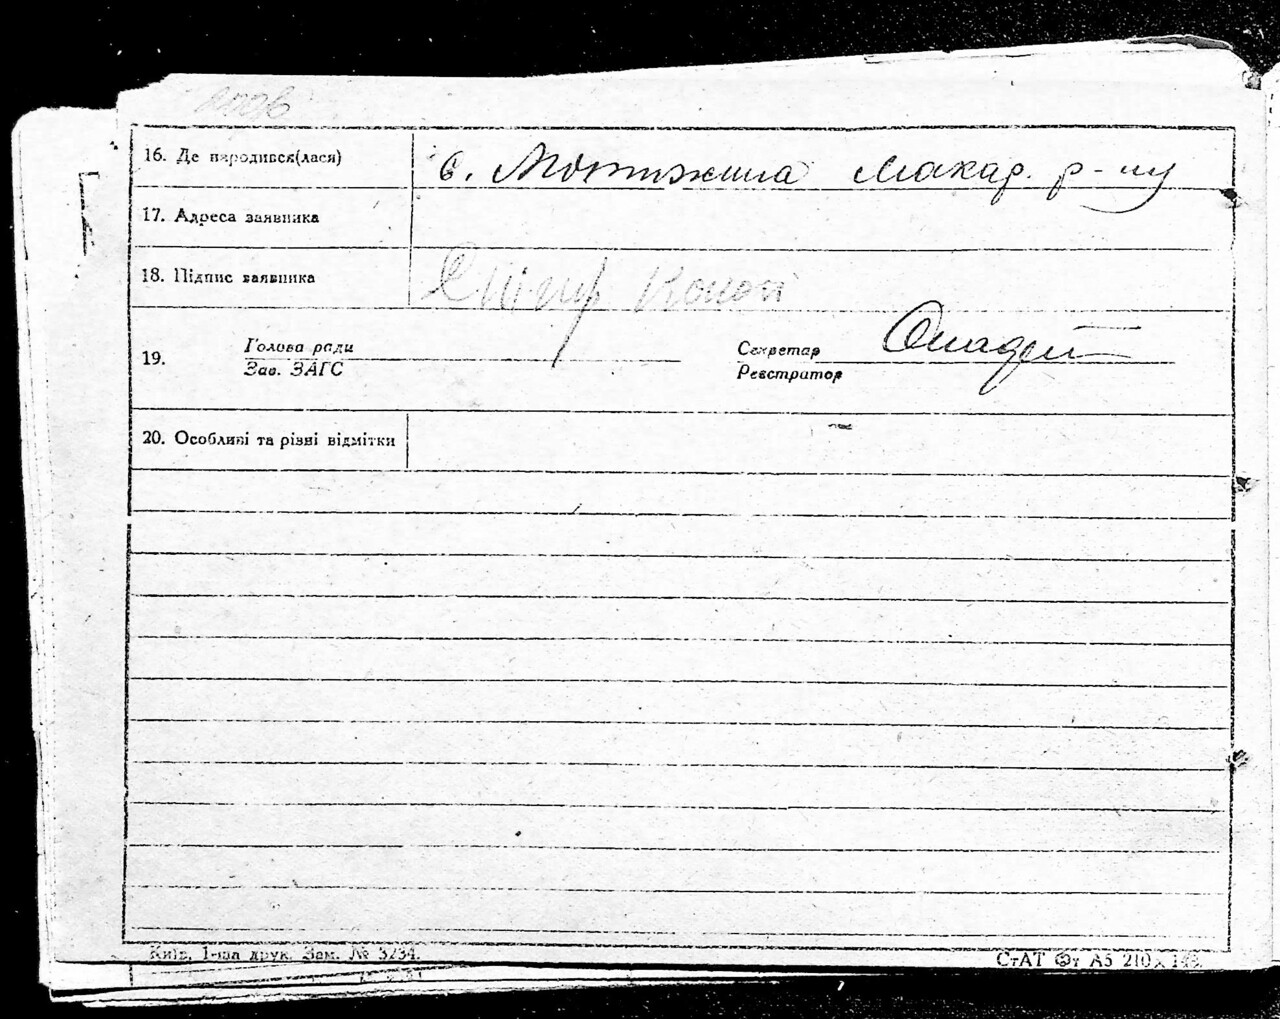 16. Де народився(лася) с. Мотижина Макар. р-ну
17. Адреса заявника
18. Підпис заявника Конон
19. Голова ради
Зав. ЗАГС
Секретар
Реєстратор
20. Особливі та різні відмітки
Київ, 1-ша друк. Зам. № 3234.
СтАТ Фт А5 210×148.